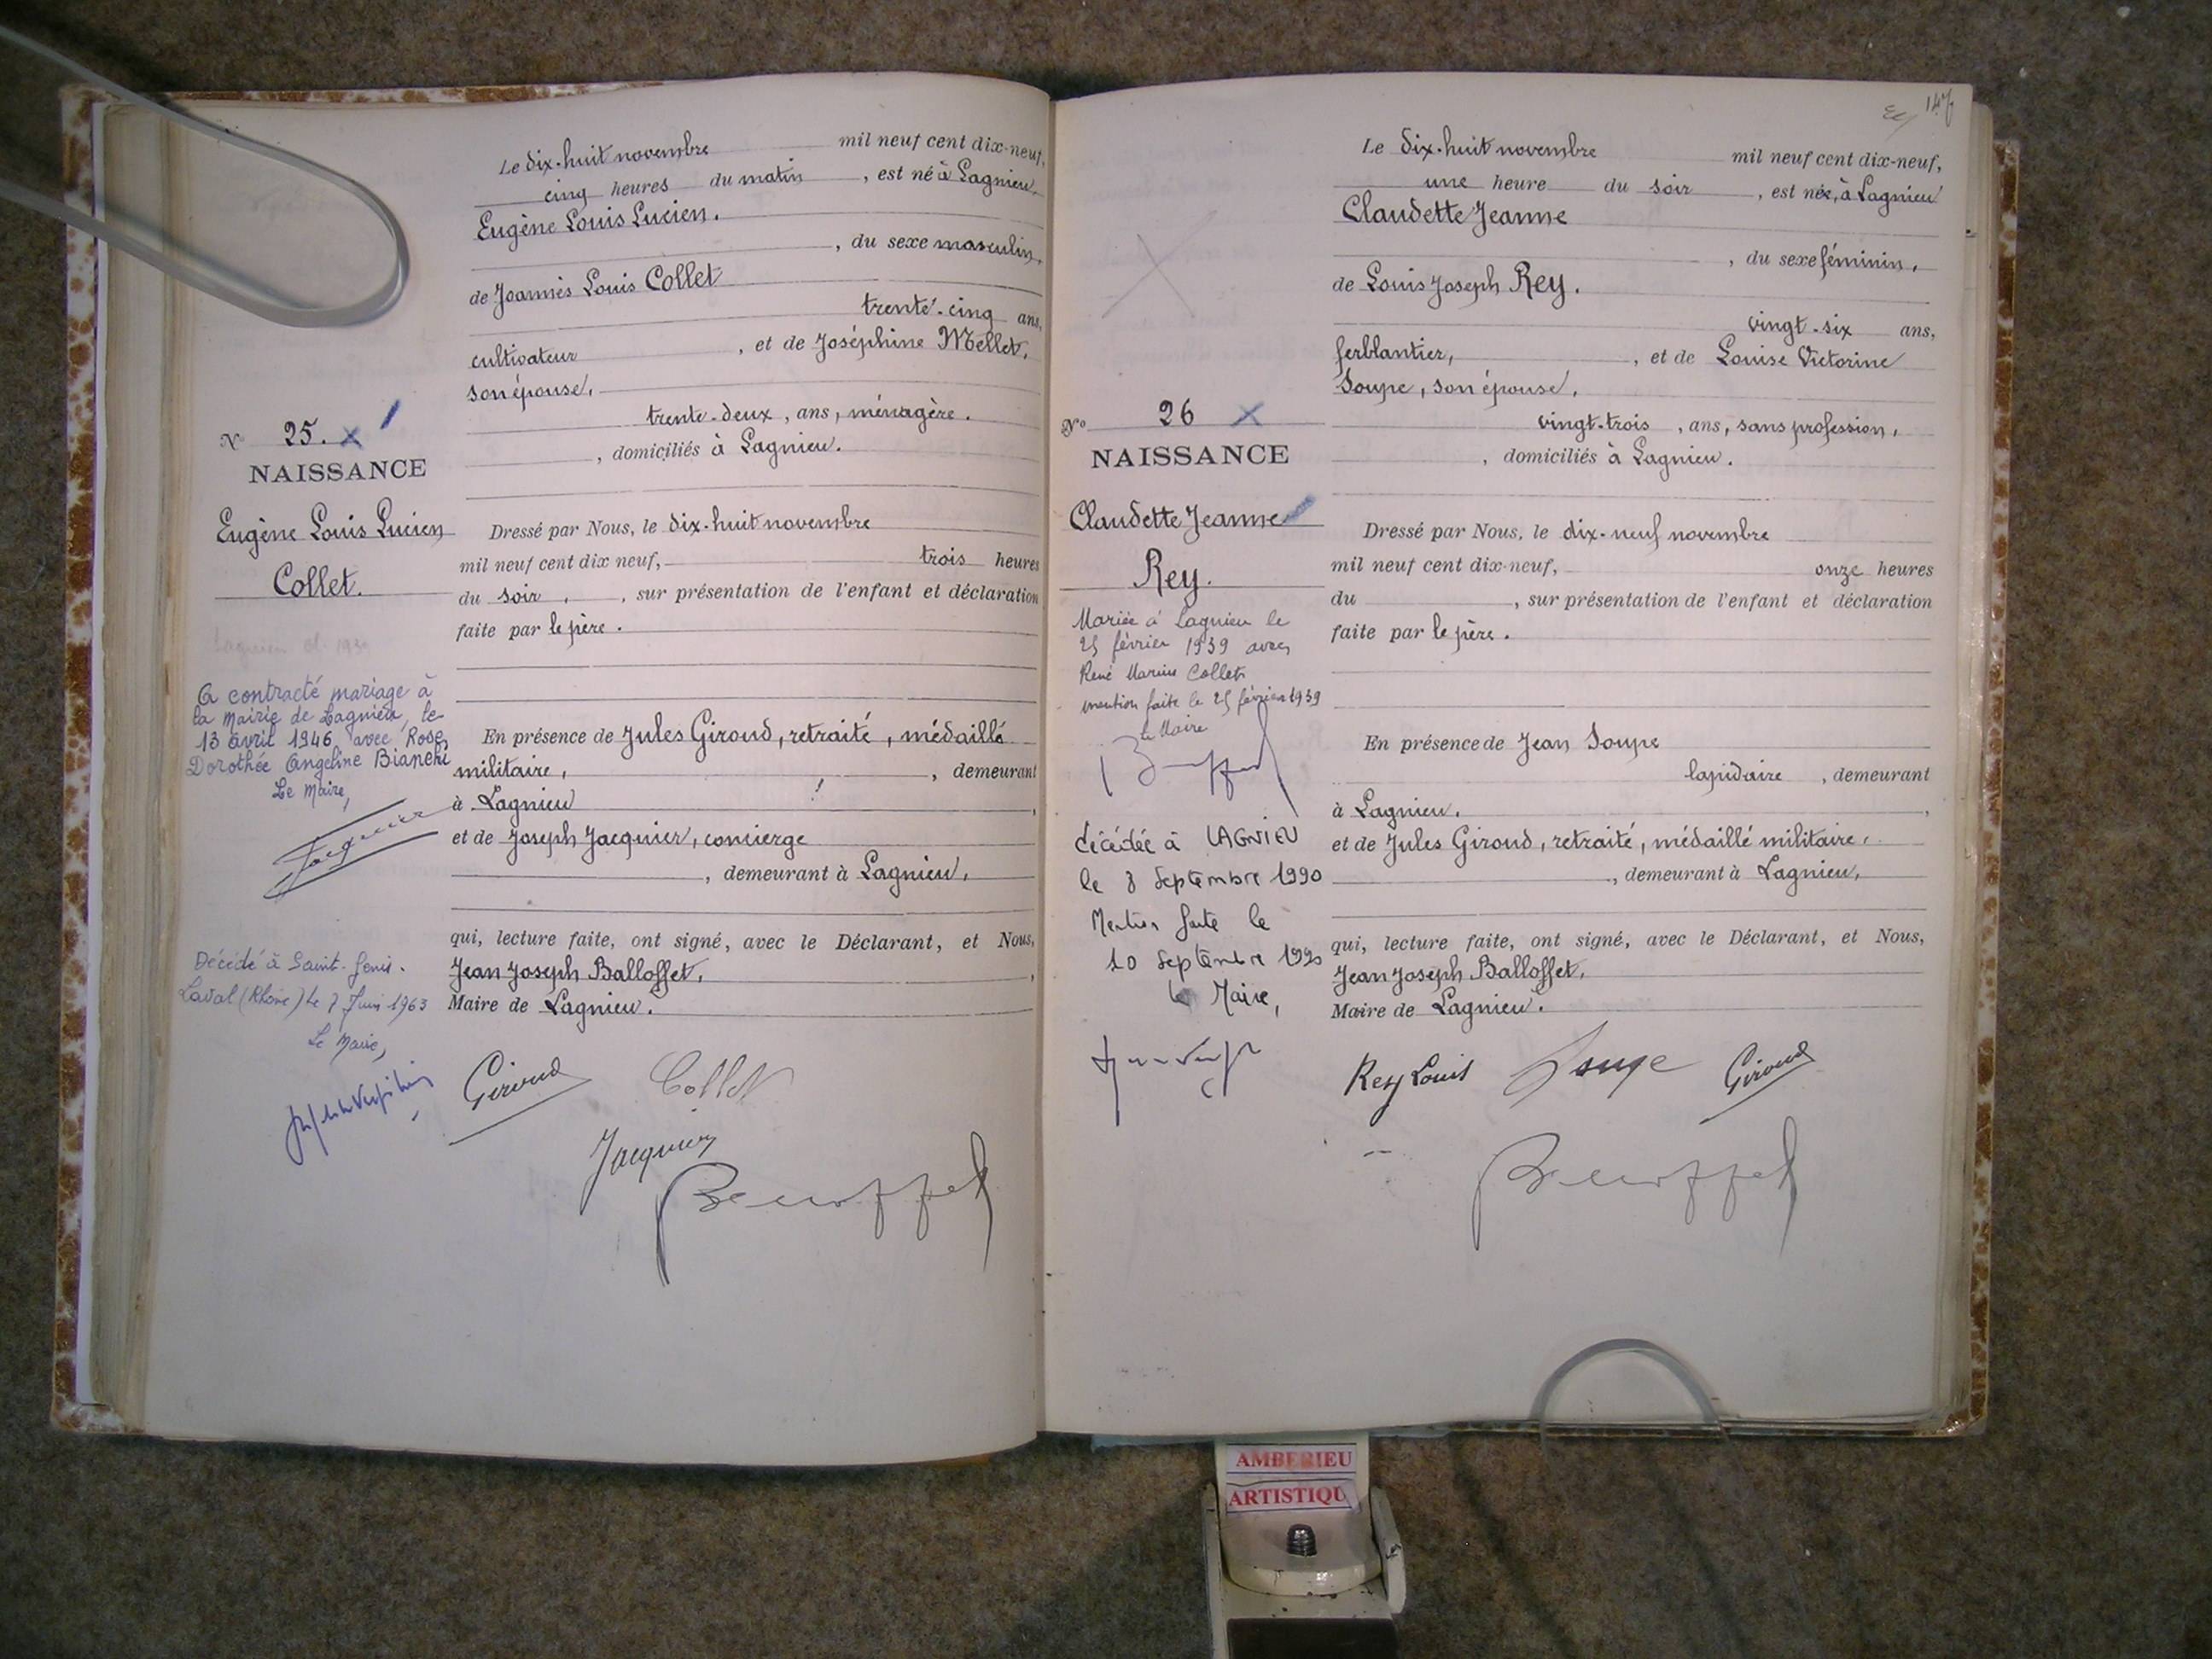 Le dix-huit novembre mil neuf cent dix-neuf,
cinq heures du matin, est né à Lagnieu,
Eugène Louis Lucien.
, du sexe masculin,
de Joannès Louis Collet
trente-cinq ans,
cultivateur, et de Joséphine Mellet,
son épouse,
trente-deux, ans, ménagère.
, domiciliés à Lagnieu.
N° 25. X
NAISSANCE
Eugène Louis Lucien
Collet.
Dressé par Nous, le dix-huit novembre
mil neuf cent dix neuf, trois heures
du soir, , sur présentation de l'enfant et déclaration
faite par le père.
Lagnieu 1939
A contracté mariage à
la Mairie de Lagnieu, le
13 avril 1946 avec Rose,
Dorothée Angeline Bianchi
Le Maire,
Jacquier
En présence de Jules Giroud, retraité, médaillé
militaire, , demeurant
à Lagnieu,
et de Joseph Jacquier, concierge
, demeurant à Lagnieu,
qui, lecture faite, ont signé, avec le Déclarant, et Nous,
Jean Joseph Balloffet,
Maire de Lagnieu.
Décédé à Saint-Genis-
Laval (Rhône) le 7 Juin 1963
Le Maire,
Giroud Collet
Jacquier
147
Le dix-huit novembre mil neuf cent dix-neuf,
une heure du soir, est née, à Lagnieu
Claudette Jeanne
, du sexe féminin,
de Louis Joseph Rey.
vingt-six ans,
ferblantier, , et de Louise Victorine
Soupe, son épouse,
vingt-trois, ans, sans profession,
, domiciliés à Lagnieu.
N° 26 X
NAISSANCE
Claudette Jeanne
Rey.
Dressé par Nous, le dix-neuf novembre
mil neuf cent dix-neuf, onze heures
du , sur présentation de l'enfant et déclaration
faite par le père.
Mariée à Lagnieu le
25 février 1939 avec
René Marius Collet
mention faite le 25 février 1939
Le Maire
En présence de Jean Soupe
lapidaire, demeurant
à Lagnieu,
et de Jules Giroud, retraité, médaillé militaire,
, demeurant à Lagnieu,
qui, lecture faite, ont signé, avec le Déclarant, et Nous,
Jean Joseph Balloffet,
Maire de Lagnieu.
décédée à LAGNIEU
le 8 Septembre 1990
Mention faite le
10 Septembre 1990
Le Maire,
Rey Louis Soupe Giroud
AMBERIEU
ARTISTIQU